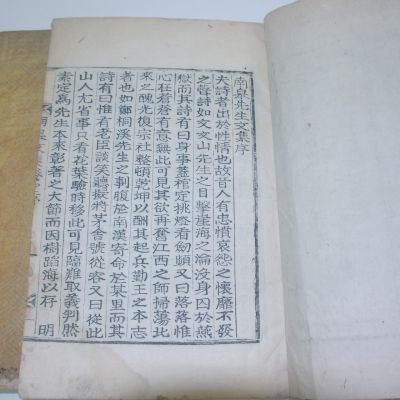 南皐先生文集序
夫詩者出於性情也故昔人有忠憤哀怨之懷靡不發
之聲詩如文文山先生之目擊崖海之淪沒身囚於燕
獄而其詩有曰身事蓋棺定挑燈看劒頻又曰落落惟
心在蒼蒼有意無此可見其欲再奮江西之師掃蕩北
來之醜光復宗社整頓乾坤以酬其起兵勤王之本志
者也如鄭桐溪先生之剚腹於南漢寄命於某里而其
詩有曰惟有老臣談笑聽擬將茅舍號從容又曰從此
山人尤省事只看花葉驗時移此可見臨難取義判然
素定爲先生本來彰著之大節而因樹蹈海以存 明